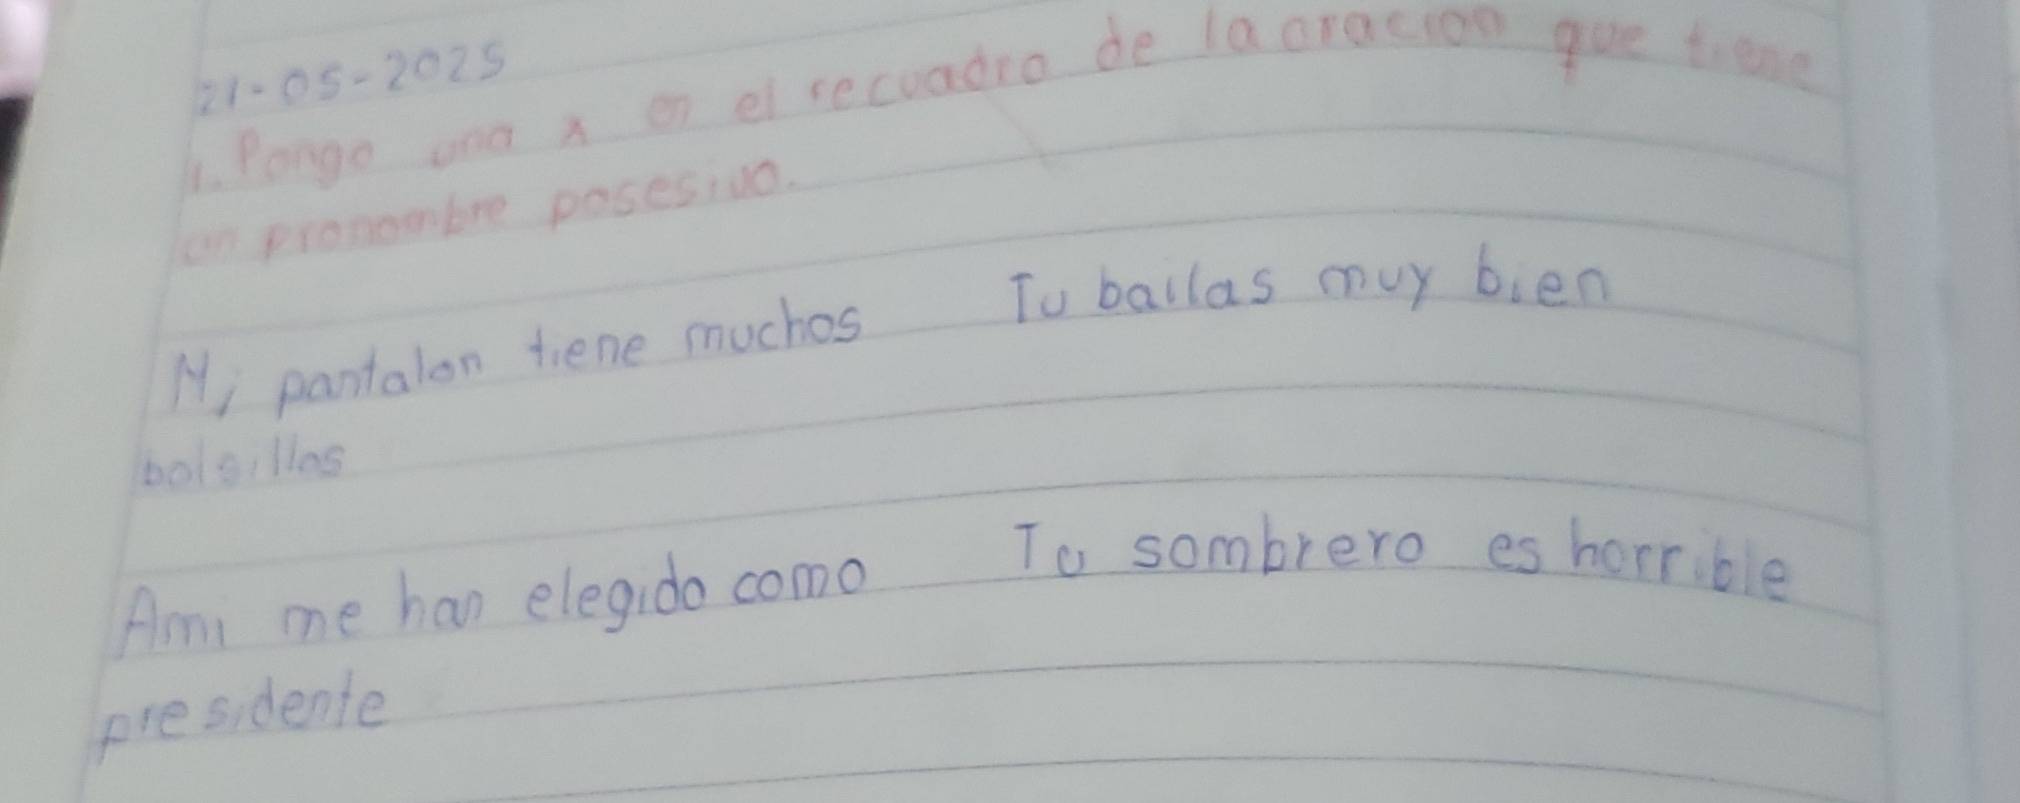 21-05-2025
1. Pongo una x en el recuadro de la oracion que tiene
un pronombre posesivo.
Mi pantalon tiene muchos
bolsillos
Tu bailas muy bien
Ami me han elegido como
presidente
Tu sombrero es horrible